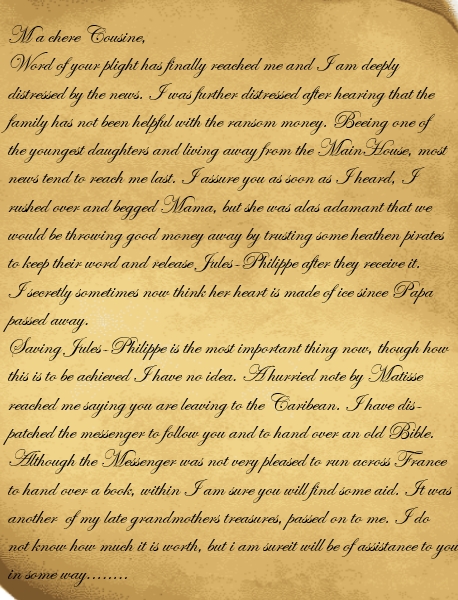 Ma chere Cousine,
Word of your plight has finally reached me and I am deeply
distressed by the news. I was further distressed after hearing that the
family has not been helpful with the ransom money. Beeing one of
the youngest daughters and living away from the Main House, most
news tend to reach me last. I assure you as soon as I heard, I
rushed over and begged Mama, but she was alas adamant that we
would be throwing good money away by trusting some heathen pirates
to keep their word and release Jules-Philippe after they receive it.
I secretly sometimes now think her heart is made of ice since Papa
passed away.
Saving Jules-Philippe is the most important thing now, though how
this is to be achieved I have no idea. A hurried note by Matisse
reached me saying you are leaving to the Caribean. I have dis-
patched the messenger to follow you and to hand over an old Bible.
Although the Messenger was not very pleased to run across France
to hand over a book, within I am sure you will find some aid. It was
another of my late grandmothers treasures, passed on to me. I do
not know how much it is worth, but i am sureit will be of assistance to you
in some way........